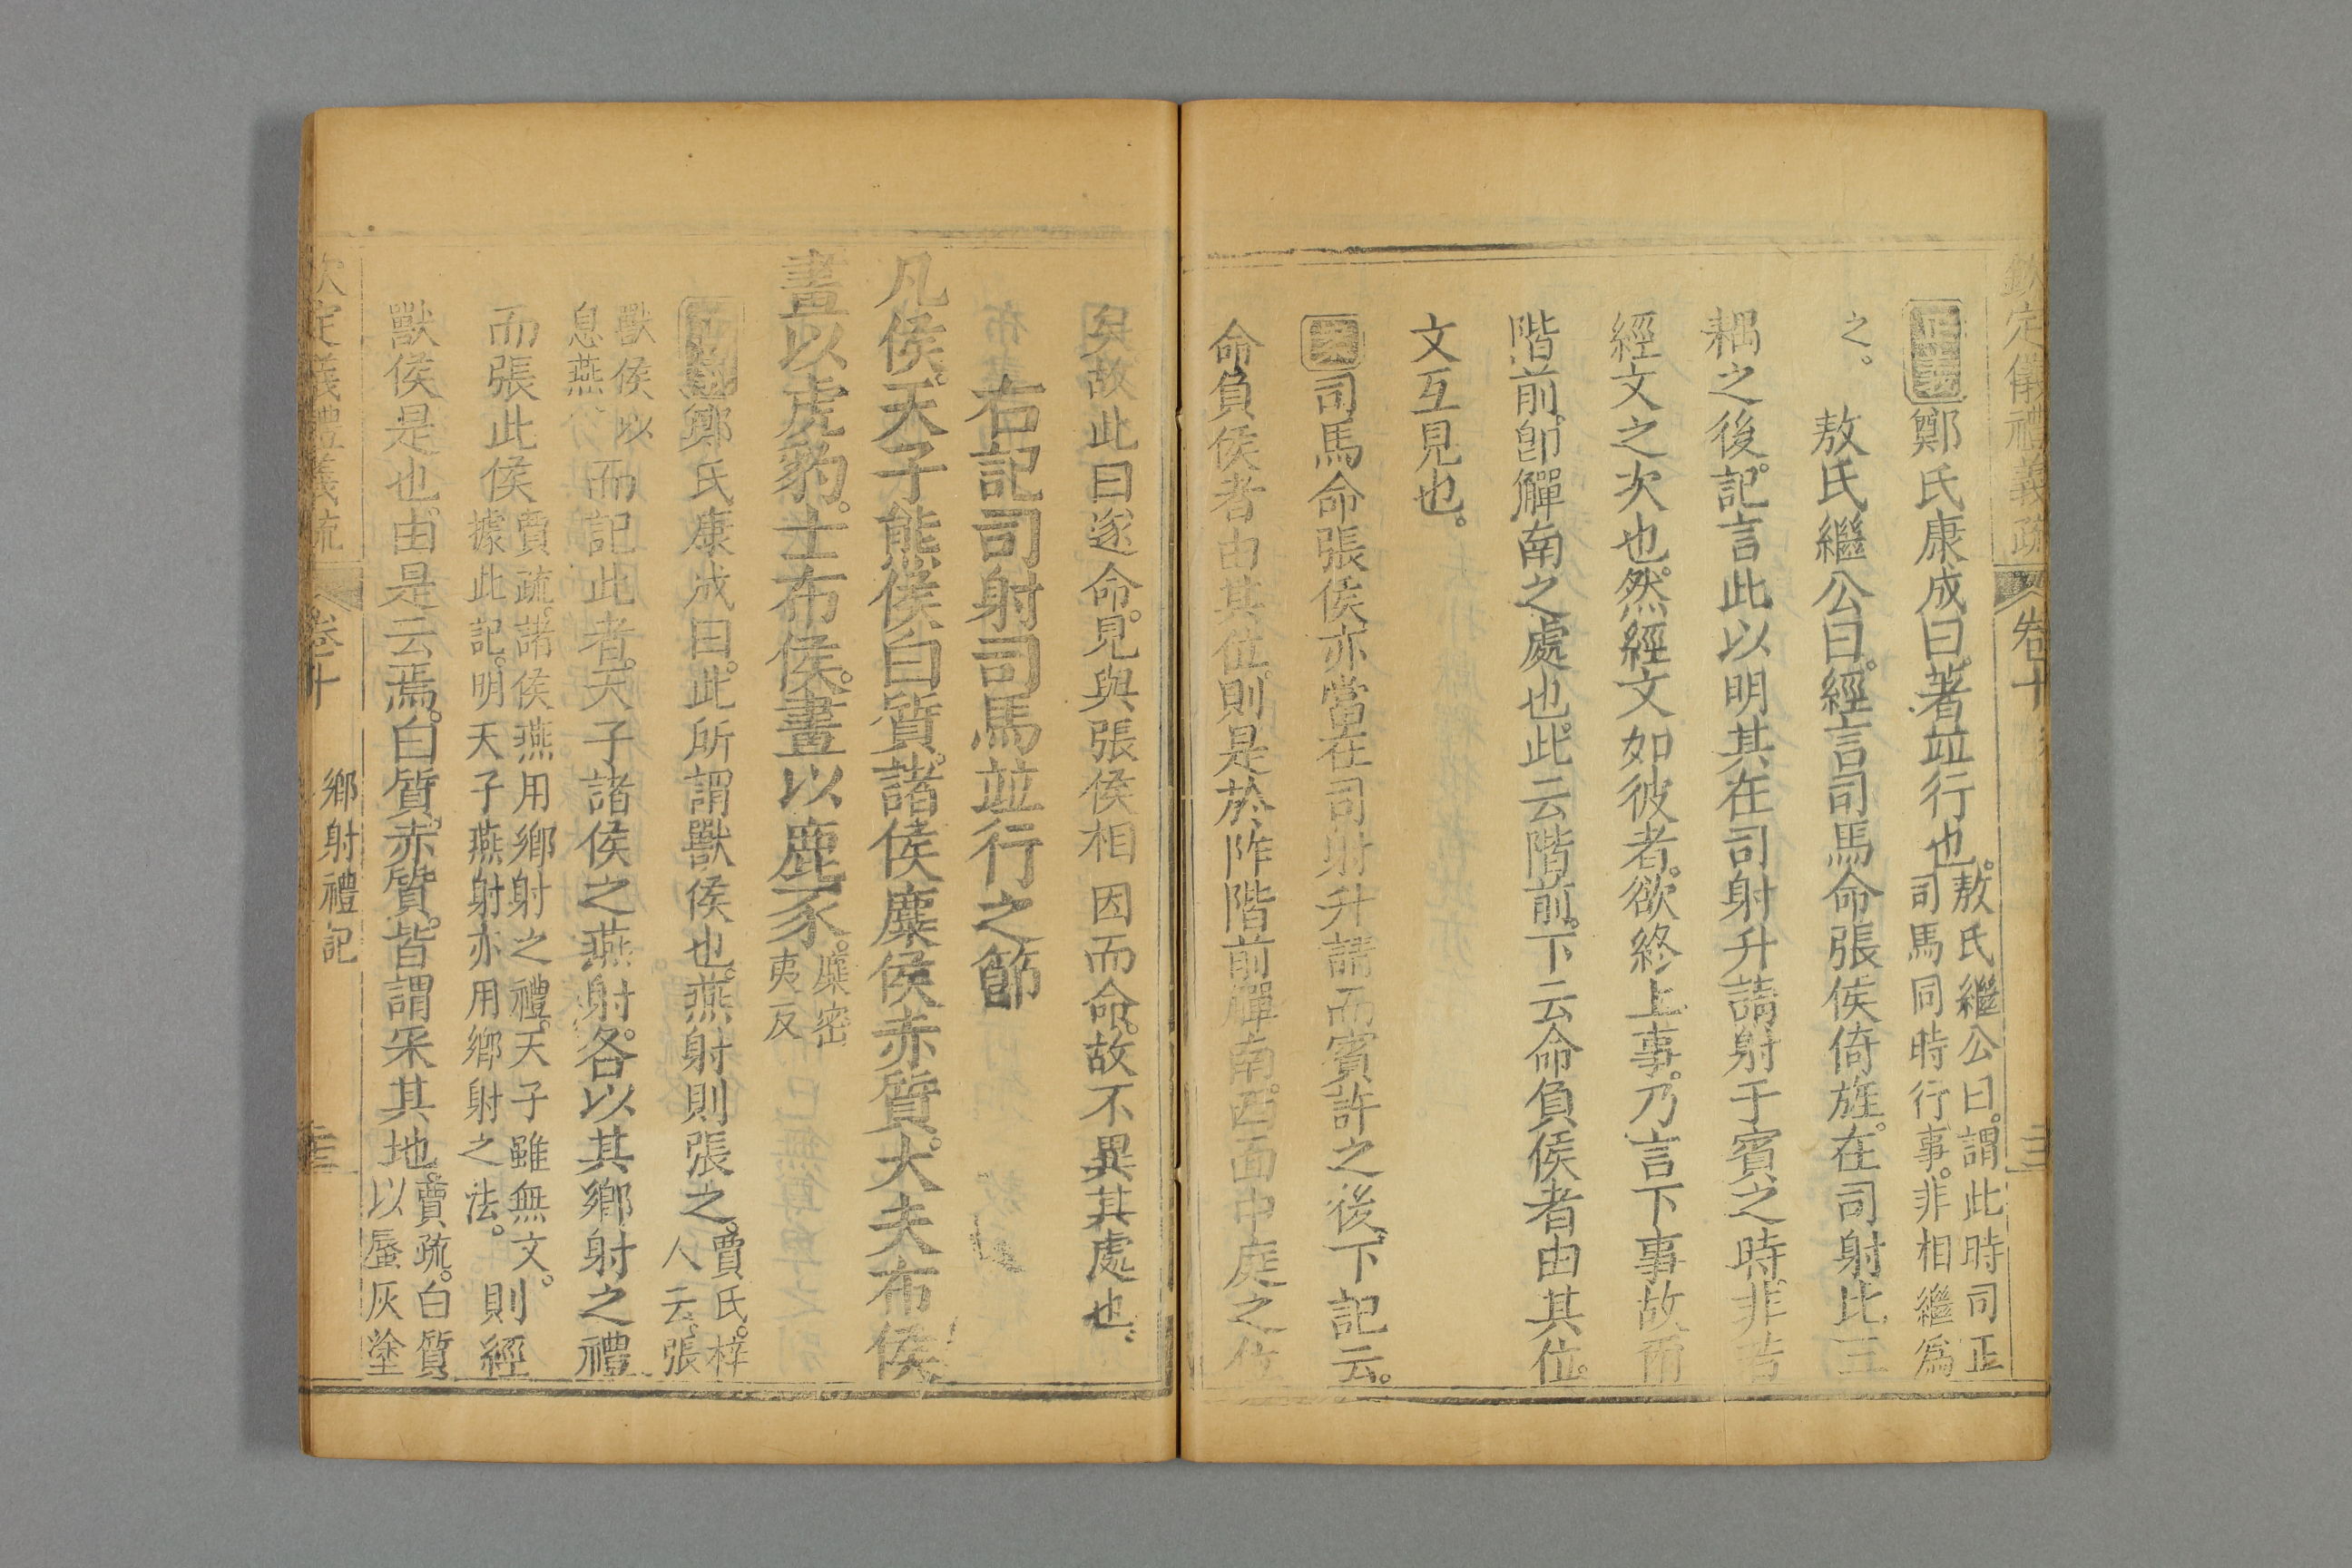 欽定儀禮義疏 卷十
正義鄭氏康成曰。著並行也。敖氏繼公曰。謂此時司正司馬同時行事。非相繼爲
之。 敖氏繼公曰。經言司馬命張侯倚旌。在司射比三
耦之後。記言此以明其在司射升請射于賓之時。非
經文之次也。然經文如彼者。欲終上事。乃言下事故
階前。卽觶南之處也。此云階前。下云命負侯者由其位。
文互見也。
司馬命張侯亦當在司射升請而賓許之後。下記云。
命負侯者由其位。則是於阼階前觶南。西面中庭之
故此曰遂命。見與張侯相因而命。故不異其處也。
右記司射司馬並行之節
凡侯。天子熊侯白質。諸侯麋侯赤質。大夫布侯
畫以虎豹。士布侯。畫以鹿豕。麋密夷反
鄭氏康成曰。此所謂獸侯也。燕射則張之。賈氏。梓人云。張
獸侯以息燕 而記此者。天子諸侯之燕射。各以其鄉射之禮
而張此侯 賈疏。諸侯燕用鄉射之禮。天子雖無文。據此記。明天子燕射亦用鄉射之法。 則經
獸侯是也。由是云焉。白質。赤質。皆謂采其地。賈疏。白質以蜃灰塗
定義禮義疏 卷十 鄉射禮記